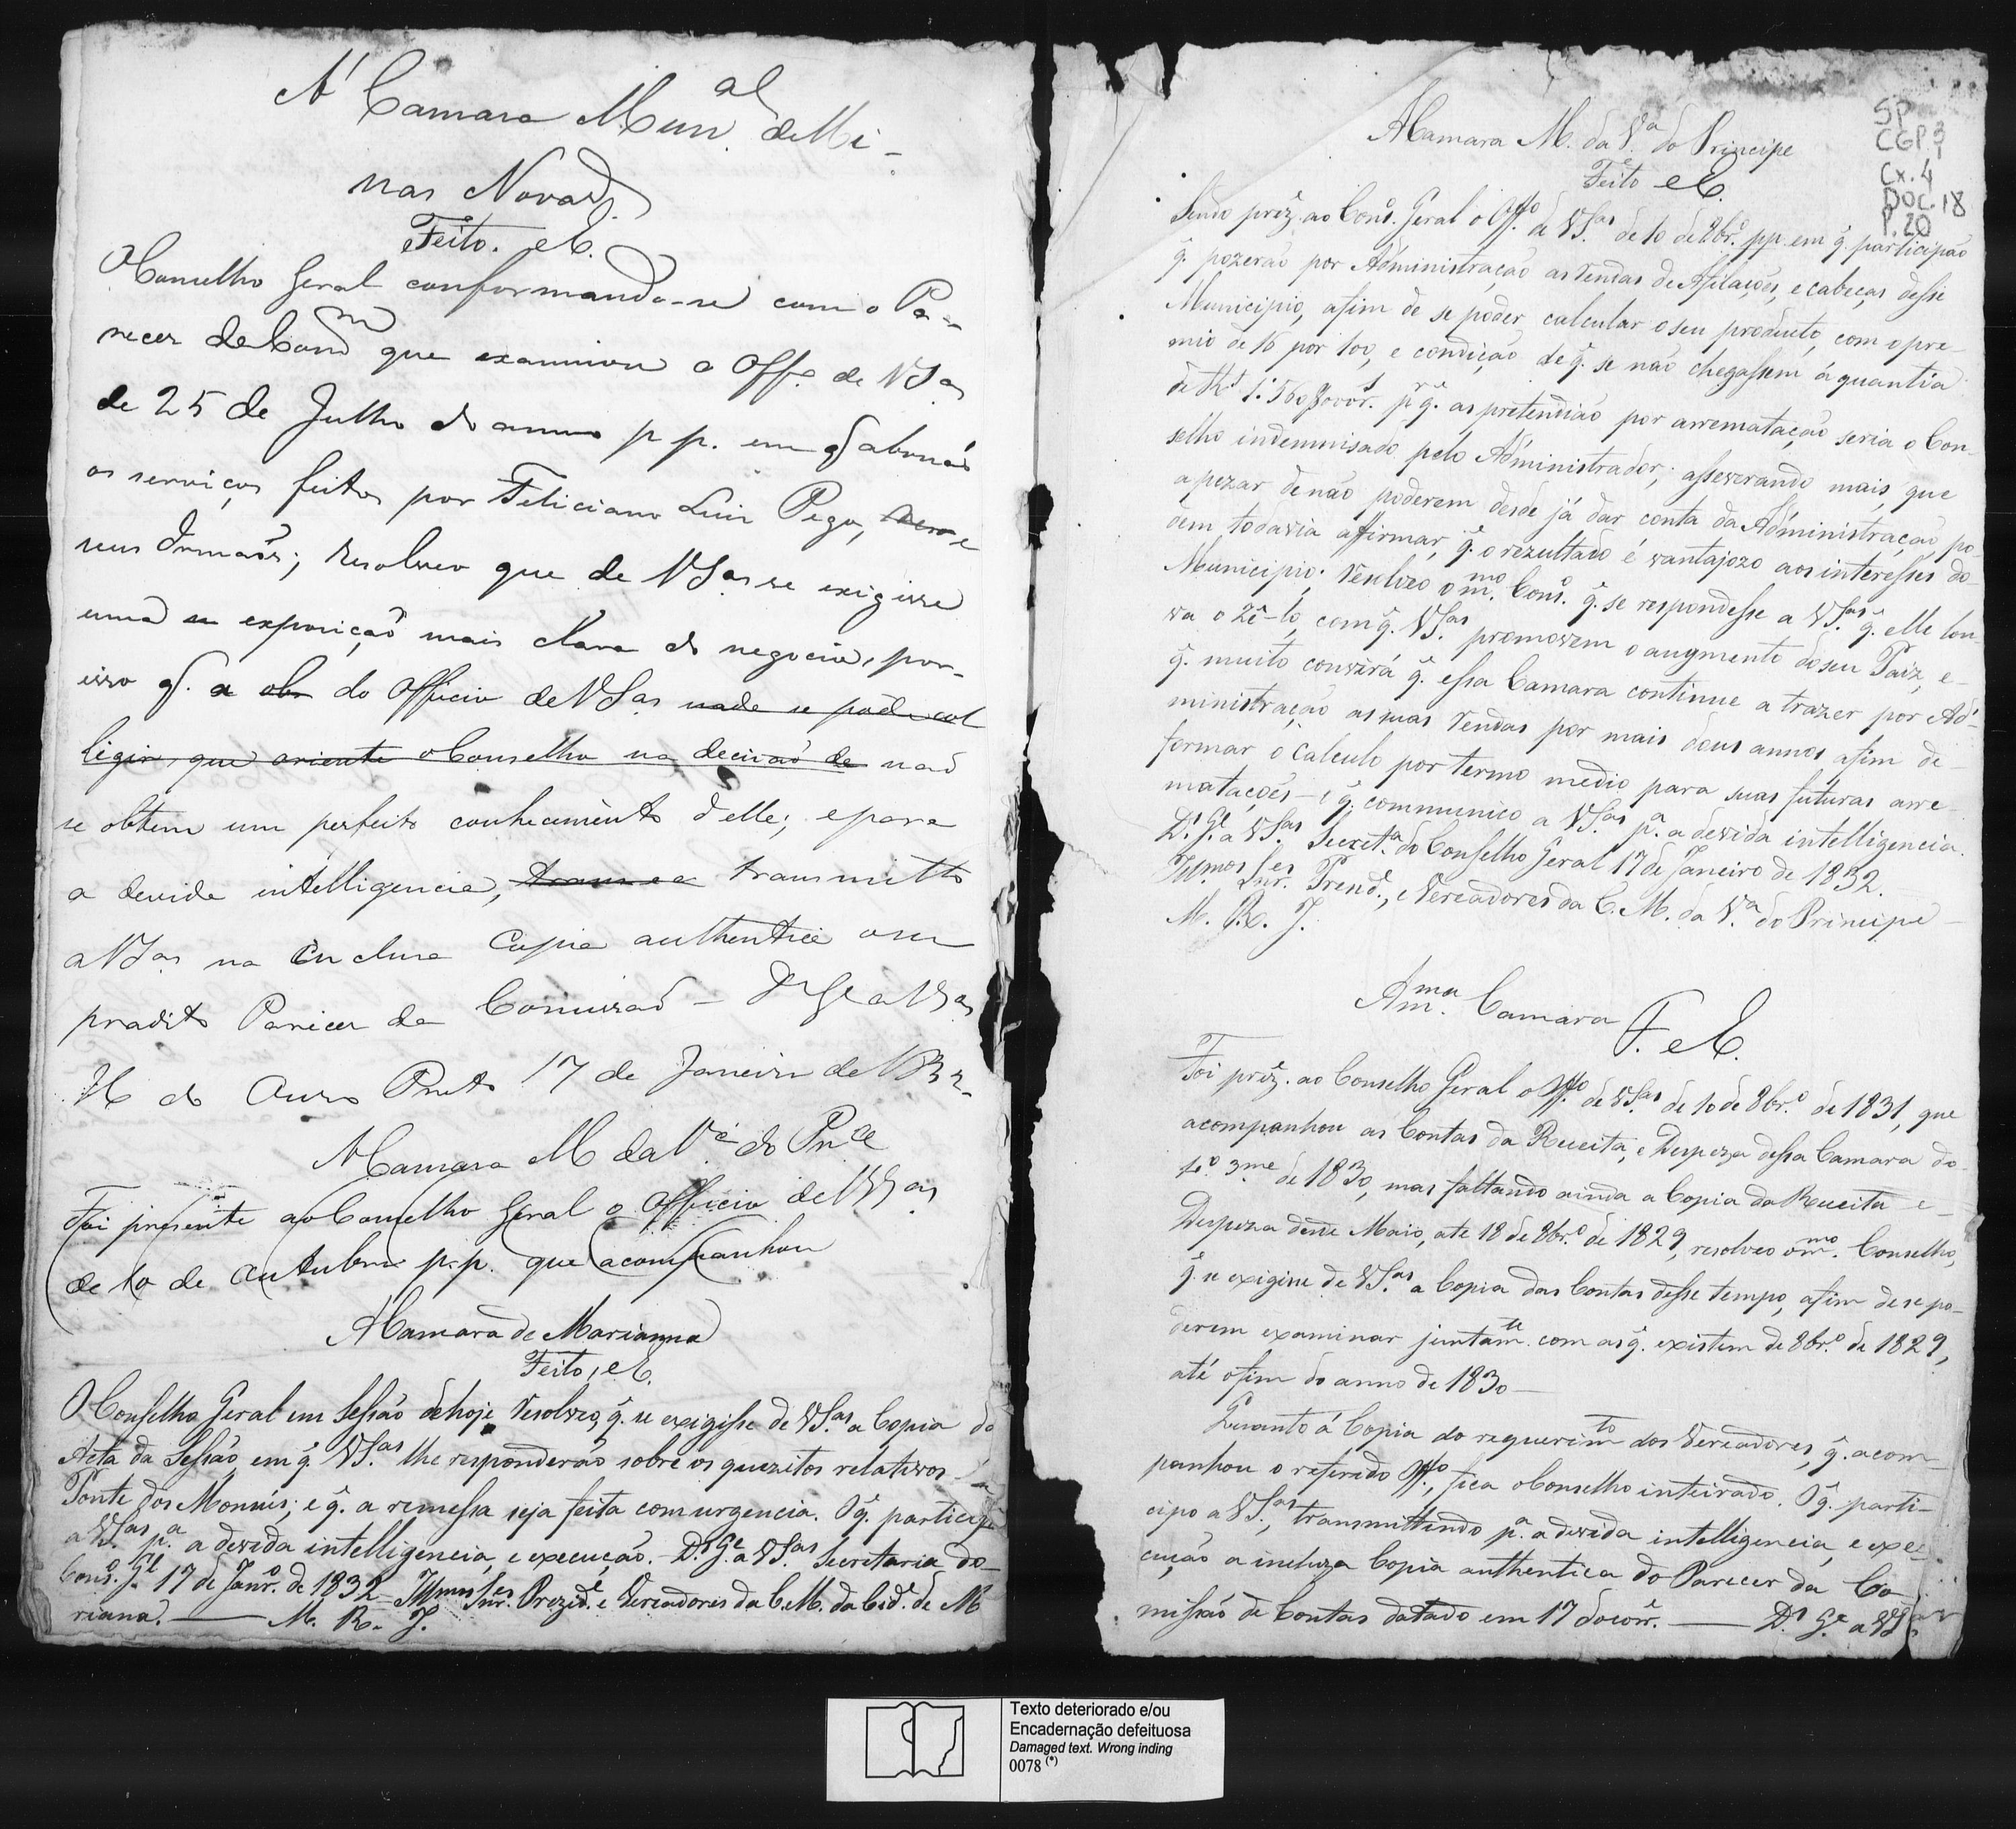 A' Camara Mun.al de Mi-
nas Novas.
Feito. e C.
O Conselho Geral conformando-se com o Pa-
recer da Comm que examinou o Off.o de VSas
de 25 de Julho do anno p p. em q abonão
os serviços feitos por Feliciano Luis Pego, e
seus Irmaõs; resolveo que de VSas se exigisse
uma exposiçaõ mais clara do negocio, por-
isso q. a do Officio de VSas nada se póde col
ligir, que oriente o Conselho na decisaõ de naõ
se obtem um perfeito conhecimento delle; e para
a devida intelligencia, transmitto
a VSas na incluza Copia authentica o su
pradito Parecer da Comissaõ - Ds Ge a VSas
do Ouro Preto 17 de Janeiro de 1832.
A Camara M da Va do Pnce
Foi presente ao Conselho Geral o Officio de VSas
de 10 de Outubro p.p. que acompanhou
A Camara de Marianna
Feito, e C.
O Conselho Geral em Sessão de hoje resolveo, q̃. se exigisse de VSas a Copia da
Acta da Sessão, em q̃. VSas lhe responderão sobre os quezitos relativos á
Ponte dos Monsús; e q̃. a remessa seja feita com urgencia. O q̃. participo
a VSas p.a a devida intelligencia, e execução. - D.s G.e a VSas Secretaria do
Cons.o G.l 17 de Janr.o de 1832 - Illmos Snr.es Prezid.e e Vereadores da C. M. da Cid.e de M
riana. — M. R. J.
SP
CGP.3
1
Cx. 4
Doc. 18
P. 20
A Camara M. da V.a do Principe
Feito e C.
Sendo prez.e ao Cons.o Geral o Off.o de VSas de 10 de 8br.o pp. em q̃. participão
q̃. pozerão por Administração as rendas de Afilações, e cabeças desse
Municipio, afim de se poder calcular o seu producto, com o pre-
mio de 16 por 100, e condição de q̃. se não chegassem á quantia
de R.s 1:560$000r.s p.r q̃. as pretendião por arrematação seria o Con-
selho indemnisado pelo Administrador; asseverando mais, que
apezar de não poderem desde já dar conta da Administração po-
dem todavia affirmar, q̃. o rezultado é vantajozo aos interesses do
Municipio: resolveo o m.mo Cons.o q̃. se respondesse a VSas q̃. elle lou-
va o zê-lo, com q̃. VSas promovem o augmento do seu Paiz, e-
q̃. muito convirá q̃. essa Camara continue a trazer por Ad-
ministração as suas rendas por mais dous annos, afim de-
formar o calculo por termo medio para suas futuras arre
matações - O q̃. communico a VSas p.a a devida intelligencia.
D.s G.e a VSas Secret.a do Conselho Geral 17 de Janeiro de 1832.
Illmos Snr.es Prend.e, e Vereadores da C. M. da V.a do Principe -
M. R. J.
A m.ma Camara
F. e C.
Foi prez.e ao Conselho Geral o Off.o de VSas de 10 de 8br.o de 1831, que
acompanhou as Contas da Receita, e Despeza dessa Camara do-
1.o 3.me de 1830, mas faltando ainda a Copia da Receita e-
Despeza desde Maio, ate 18 de 8br.o de 1829, resolveo o m.mo Conselho,
q̃. se exigisse de VSas a Copia das Contas desse tempo, afim de se po-
derem examinar juntam.te com as q̃. existem de 8br.o de 1829,
até o fim do anno de 1830 -
Quanto á Copia do requerim.to dos Vereadores, q̃. acom-
panhou o referido Off.o, fica o Conselho inteirado. O q̃. parti-
cipo a VSas, transmittindo p.a a devida intelligencia, e exe-
cução a incluza Copia authentica do Parecer da Co
missão de Contas datado em 17 do corr.e — D.s G.e a VSas
Texto deteriorado e/ou
Encadernação defeituosa
Damaged text. Wrong inding
0078 (*)